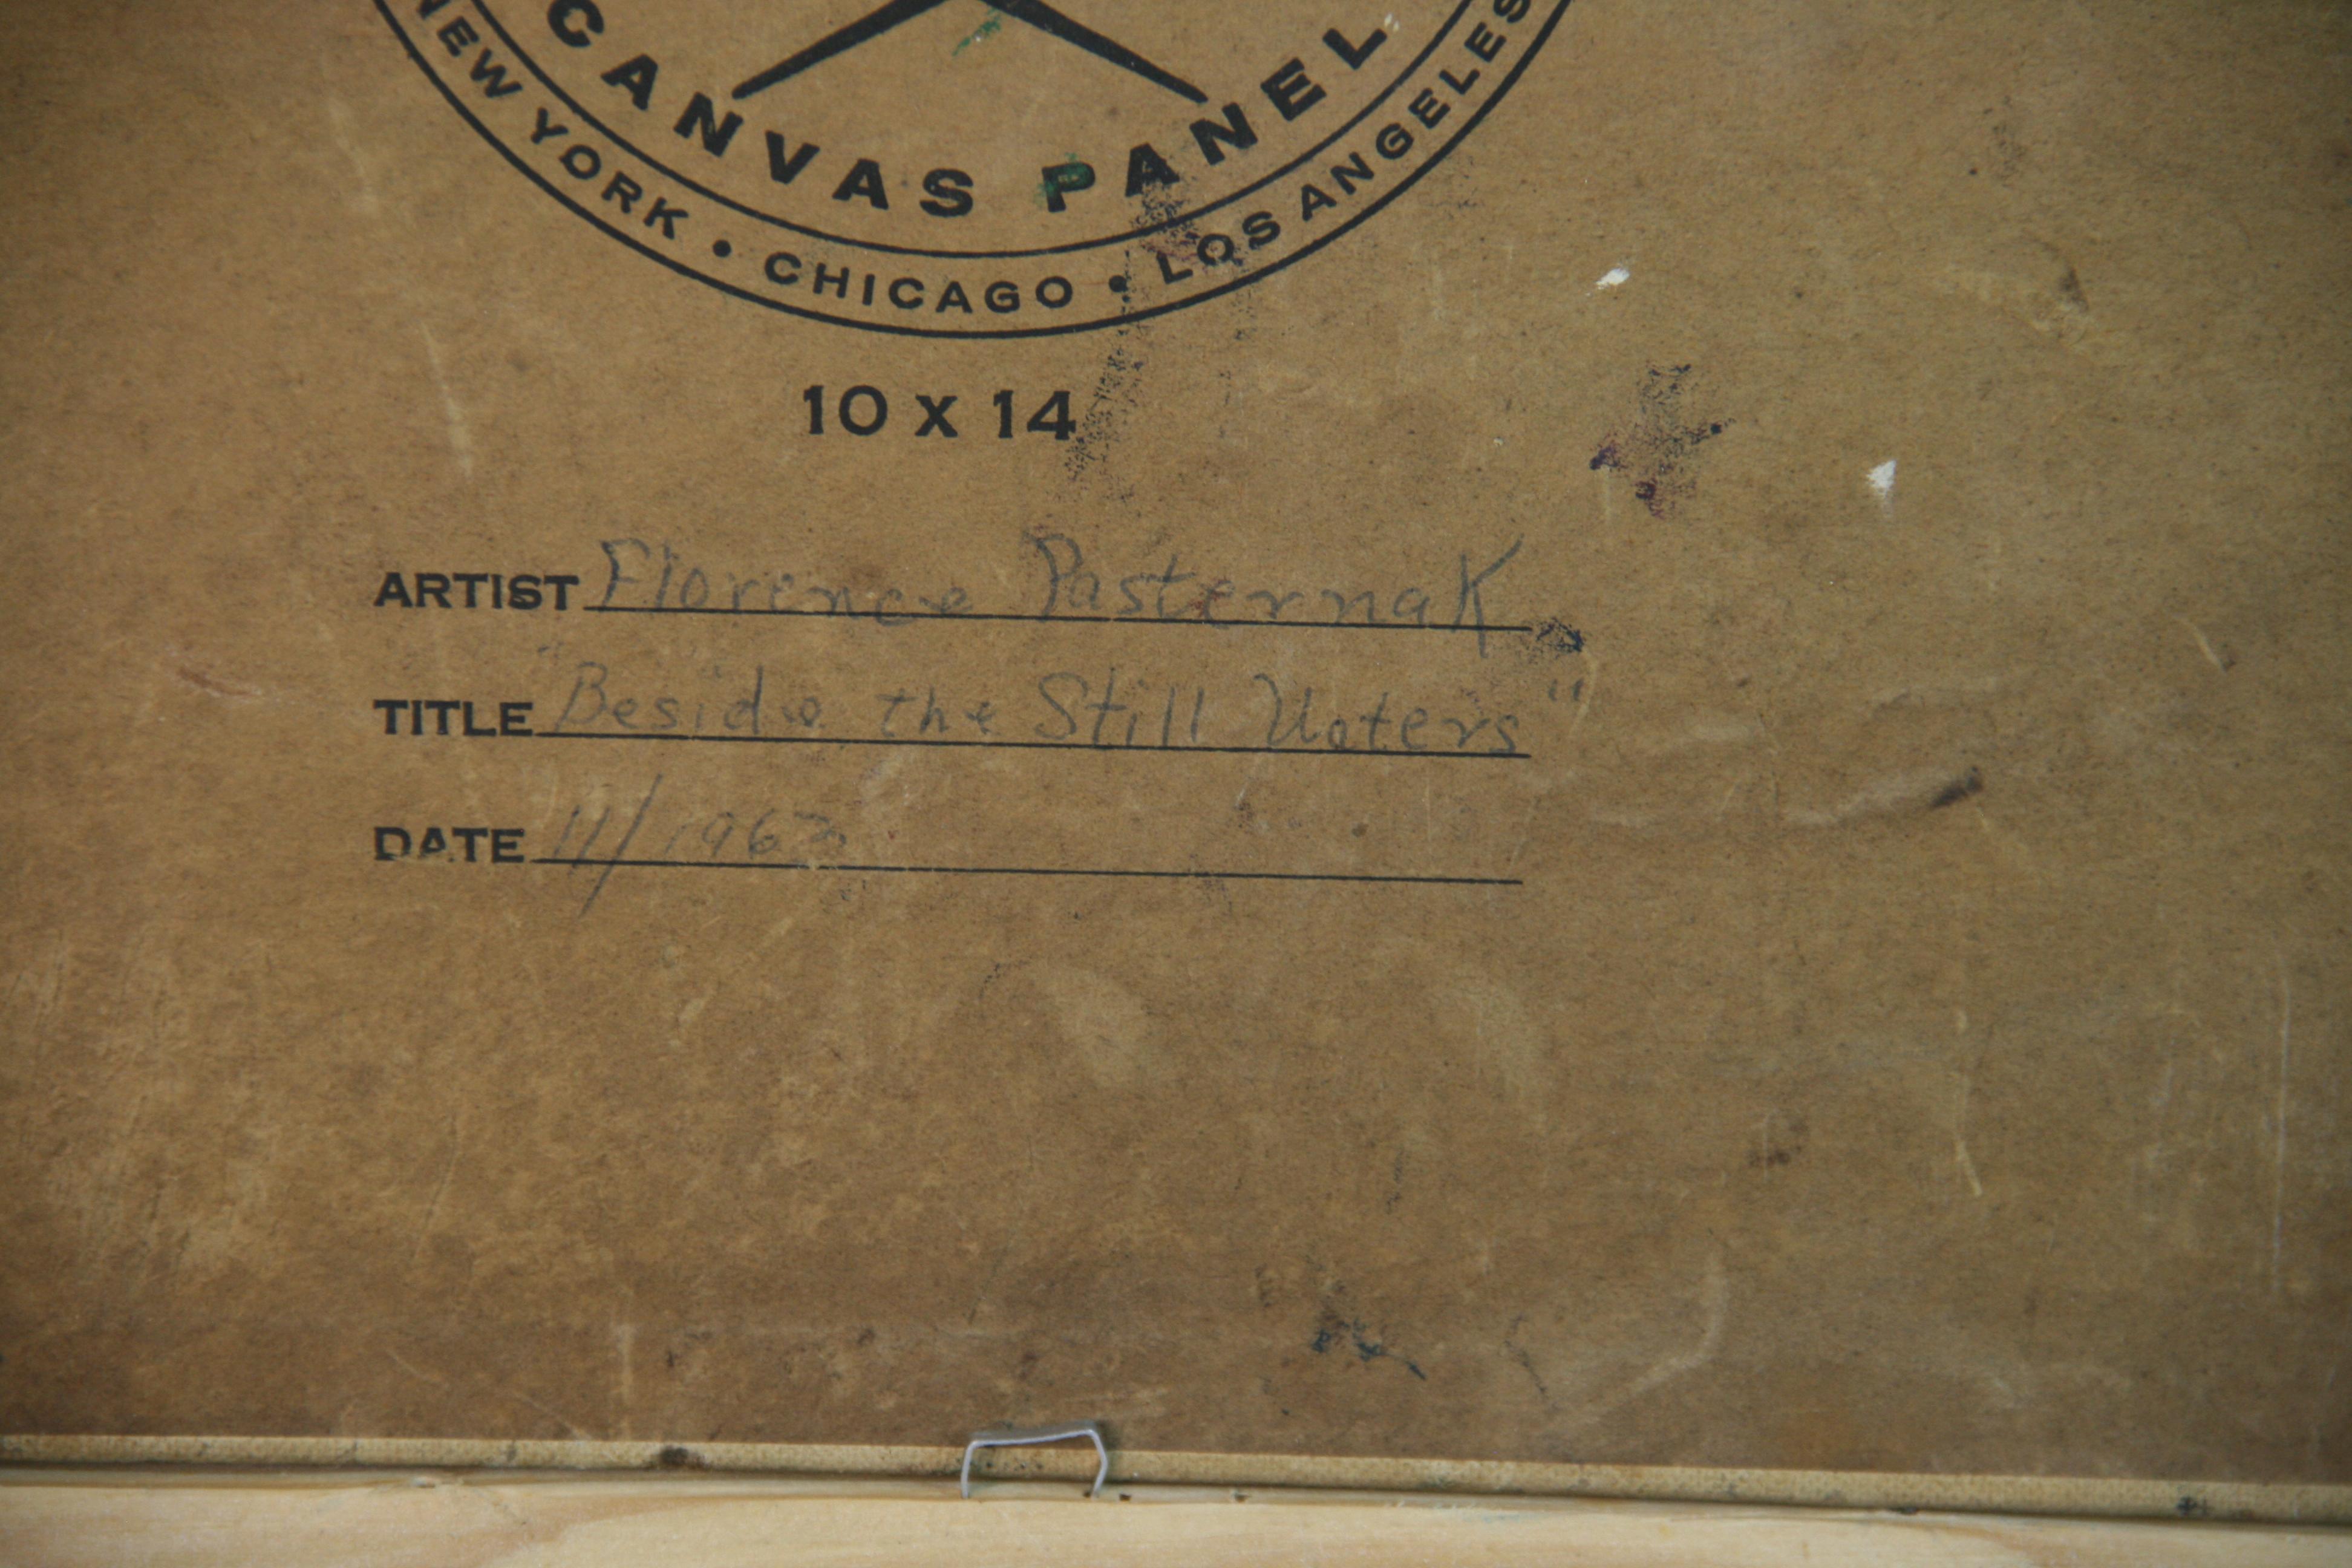 CANVAS PANEL
NEW YORK • CHICAGO • LOS ANGELES
10 X 14
ARTIST Florence Pasternak
TITLE "Beside the Still Waters"
DATE 11/1963